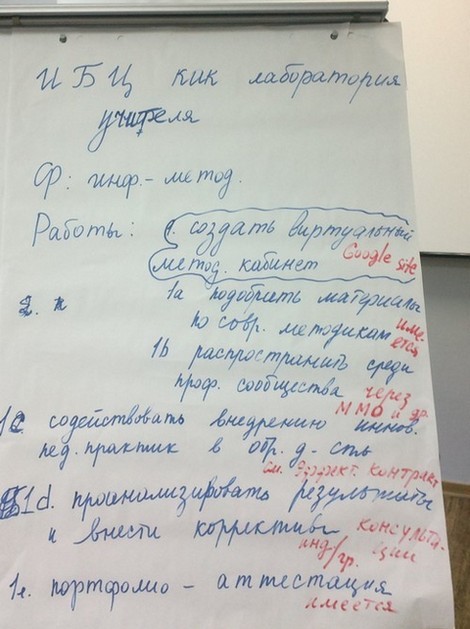 ИБЦ как лаборатория
учителя
Ф: инф.-метод.
Работы: 1. создать виртуальный
метод. кабинет Google site
1a подобрать материалы
2. п
по совр. методикам име-
ется
1b распространить среди
проф. сообщества через
ММО и др.
1c содействовать внедрению иннов.
пед. практик в обр. д-сть
см. Эффект. контракт
1d. проанализировать результаты
и внести коррективы консульта-
инд/гр. ции
1e. портфолио – аттестация
имеется